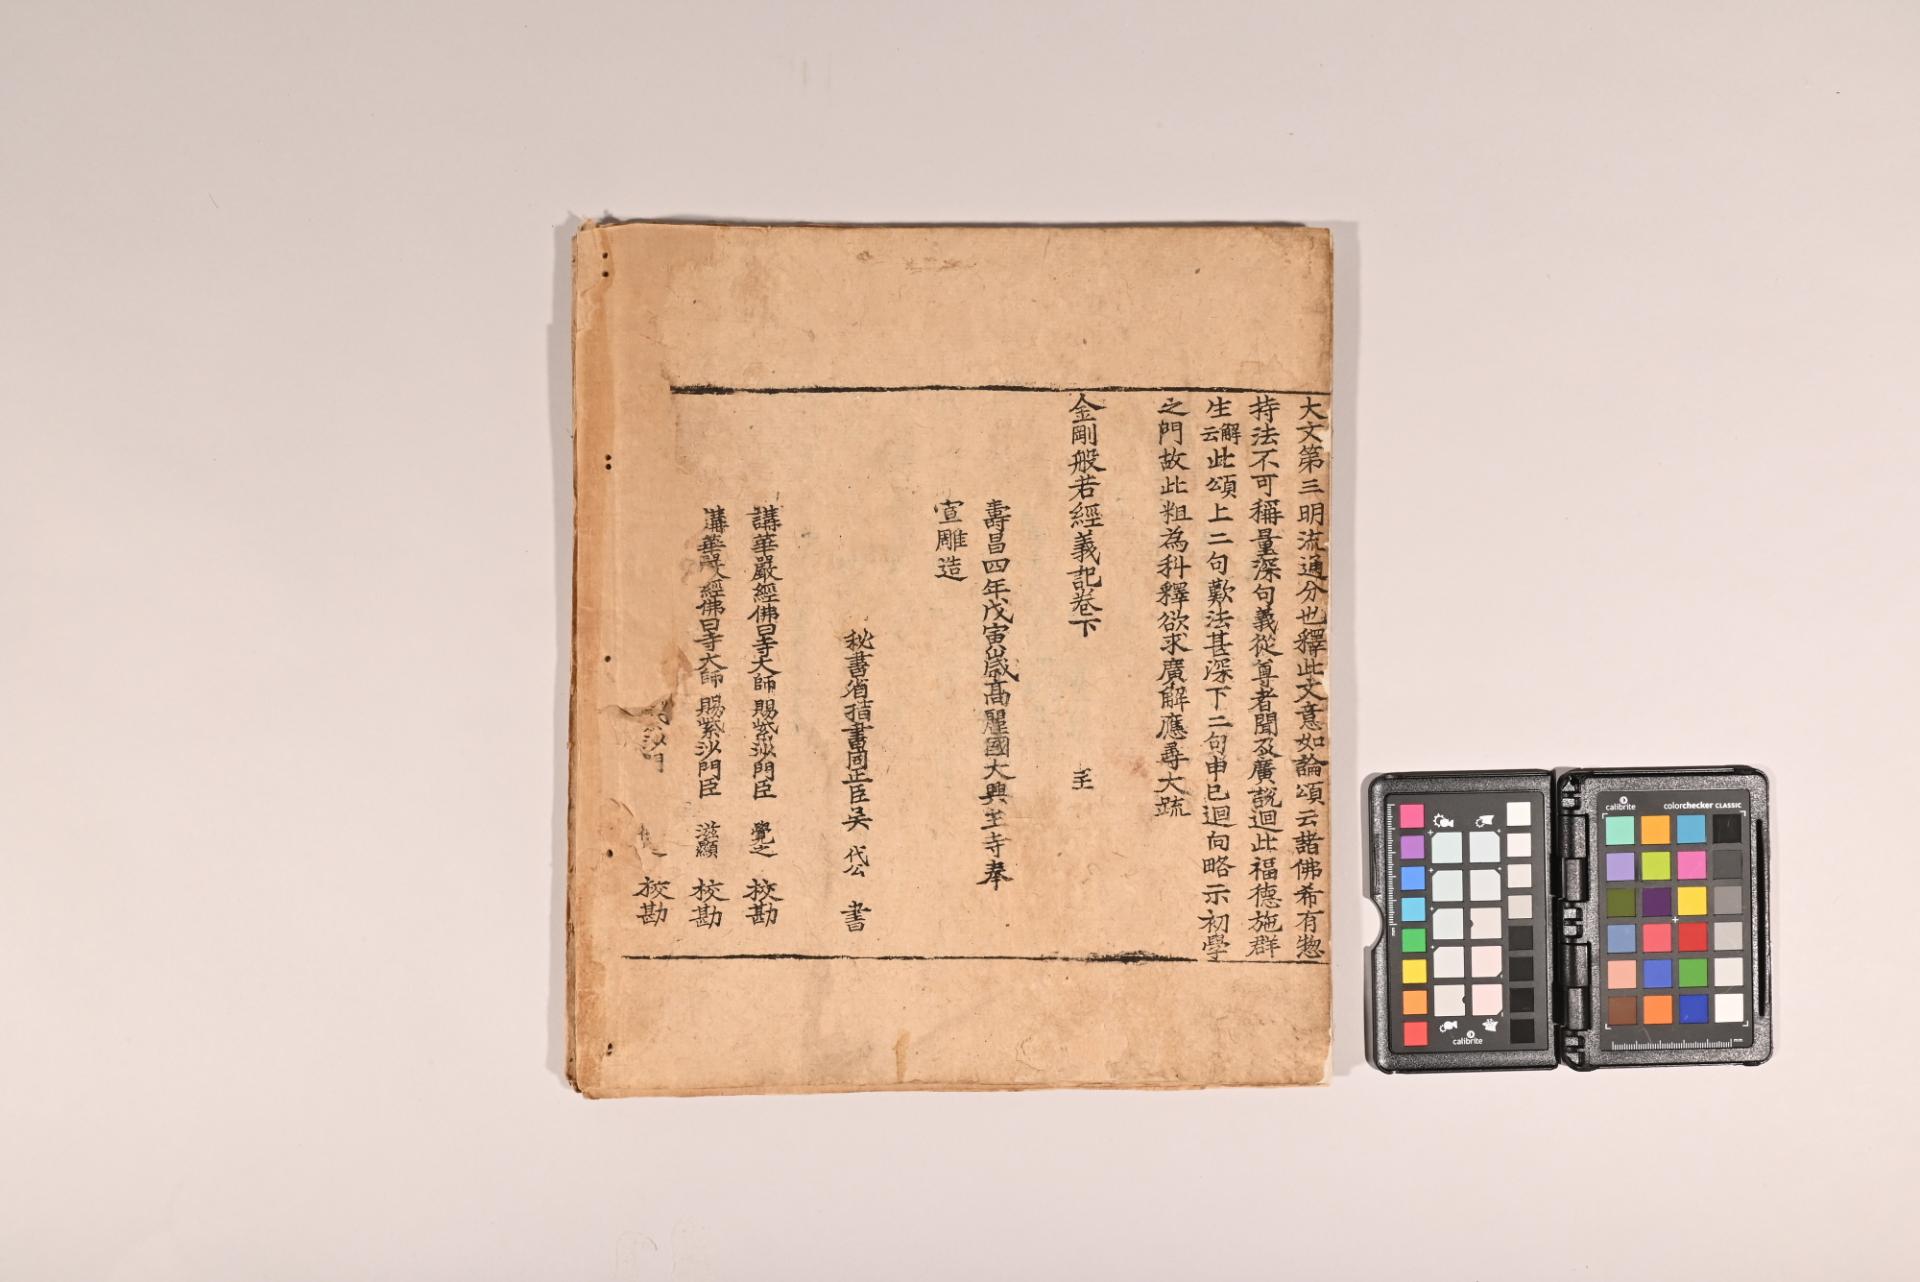 大文第三明流通分也釋此文意如論頌云諸佛希有惣
持法不可稱量深句義從尊者聞及廣說迴此福德施群
生解云此頌上二句歎法甚深下二句申已迴向略示初學
之門故此粗為科釋欲求廣解應尋大䟽
金剛般若經義記卷下
壽昌四年戊寅歲高麗國大興王寺奉
宣雕造
秘書省楷書同正臣吳 書
講華嚴經佛日寺大師賜紫沙門臣 覺之 校勘
講華嚴經佛日寺大師賜紫沙門臣 滋顯 校勘
沙門 校勘
calibrite
calibrite
colorchecker CLASSIC
mm